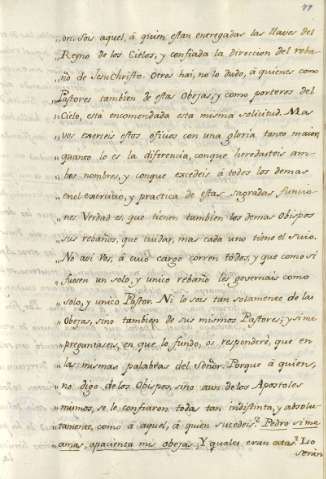 77
"or. Sois aquel, á quien estan entregadas las llaves del
"Reyno de los Cielos; y confiada la direccion del reba-
"ño de Jesu Christo. Otros hai, no lo dudo, á quienes como
"Pastores tambien de estas Obejas, y como porteros del
"Cielo, esta encomendada esta misma solicitud. Mas
"vos exerceis estos oficios con una gloria tanto maior,
"quanto lo es la diferencia, conque heredasteis am-
"bos nombres, y conque excedeis á todos los demas
"en el exercicio, y practica de estas sagradas funcio-
"nes. Verdad es, que tienen tambien los demas Obispos
"sus rebaños, que cuidar, mas cada uno tiene el suio.
"No asi Vos, á cuio cargo corren todos, y que como si
"fuesen un solo, y unico rebaño les governais como
"solo, y unico Pastor. Ni lo sois tan solamente de las
"Obejas, sino tambien de sus mismos Pastores; y si me
"preguntaseis, en que lo fundo, os responderé, que en
"las mismas palabras del Señor. Porque á quien,
"no digo de los Obispos, sino aun de los Apostoles
"mismos, se le confiaron todas tan indistinta, y absolu-
"tamente, como á aquel, á quien sucedeis? Pedro si me
"amas, apacienta mis obejas. Y quales eran estas? Lo
serán